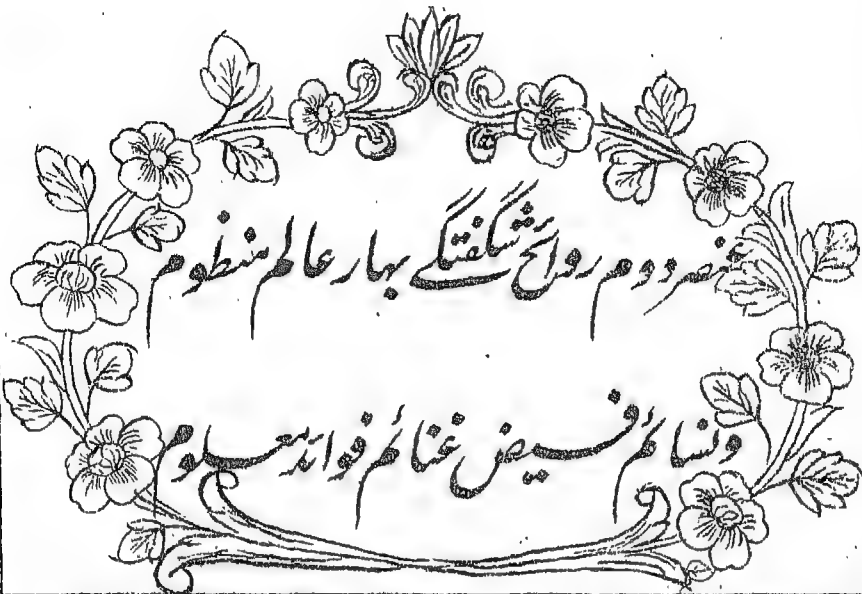 عنصر دوم روائح شگفتگے بہار عالم منظوم
ونسائم فیض غنائم فوائد معلوم